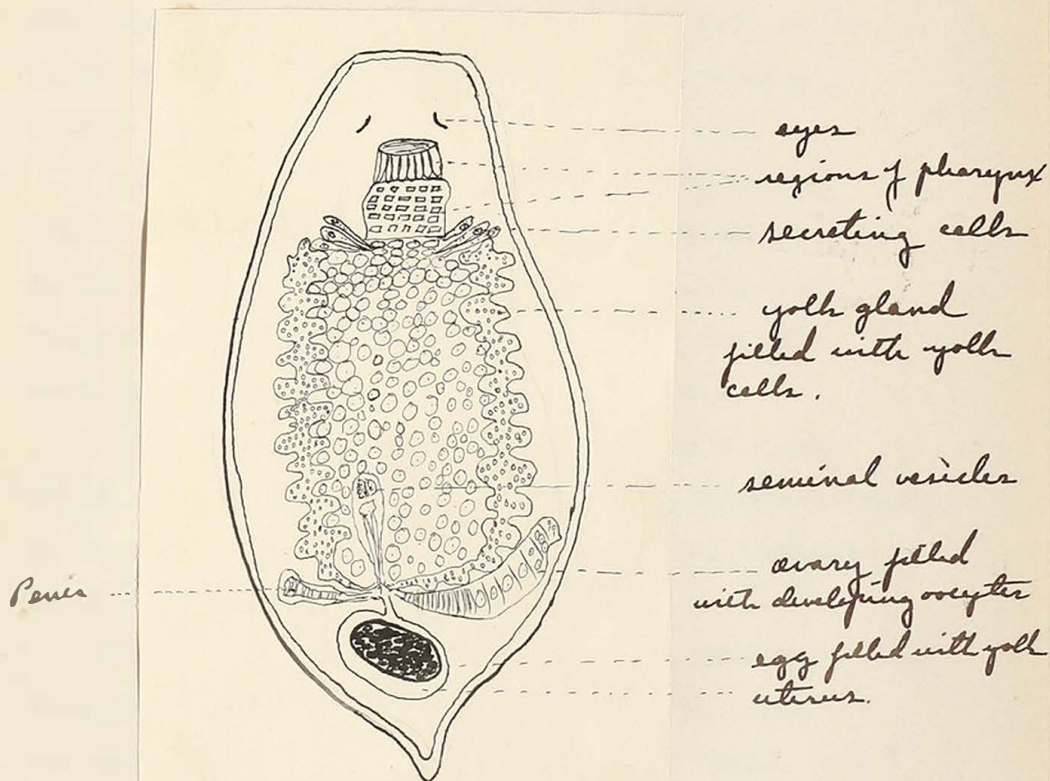 eyes
regions of pharynx
secreting cells
yolk gland
filled with yolk
cells.
seminal vesicles
ovary filled
with developing oocytes
Penis
egg filled with yolk
uterus.